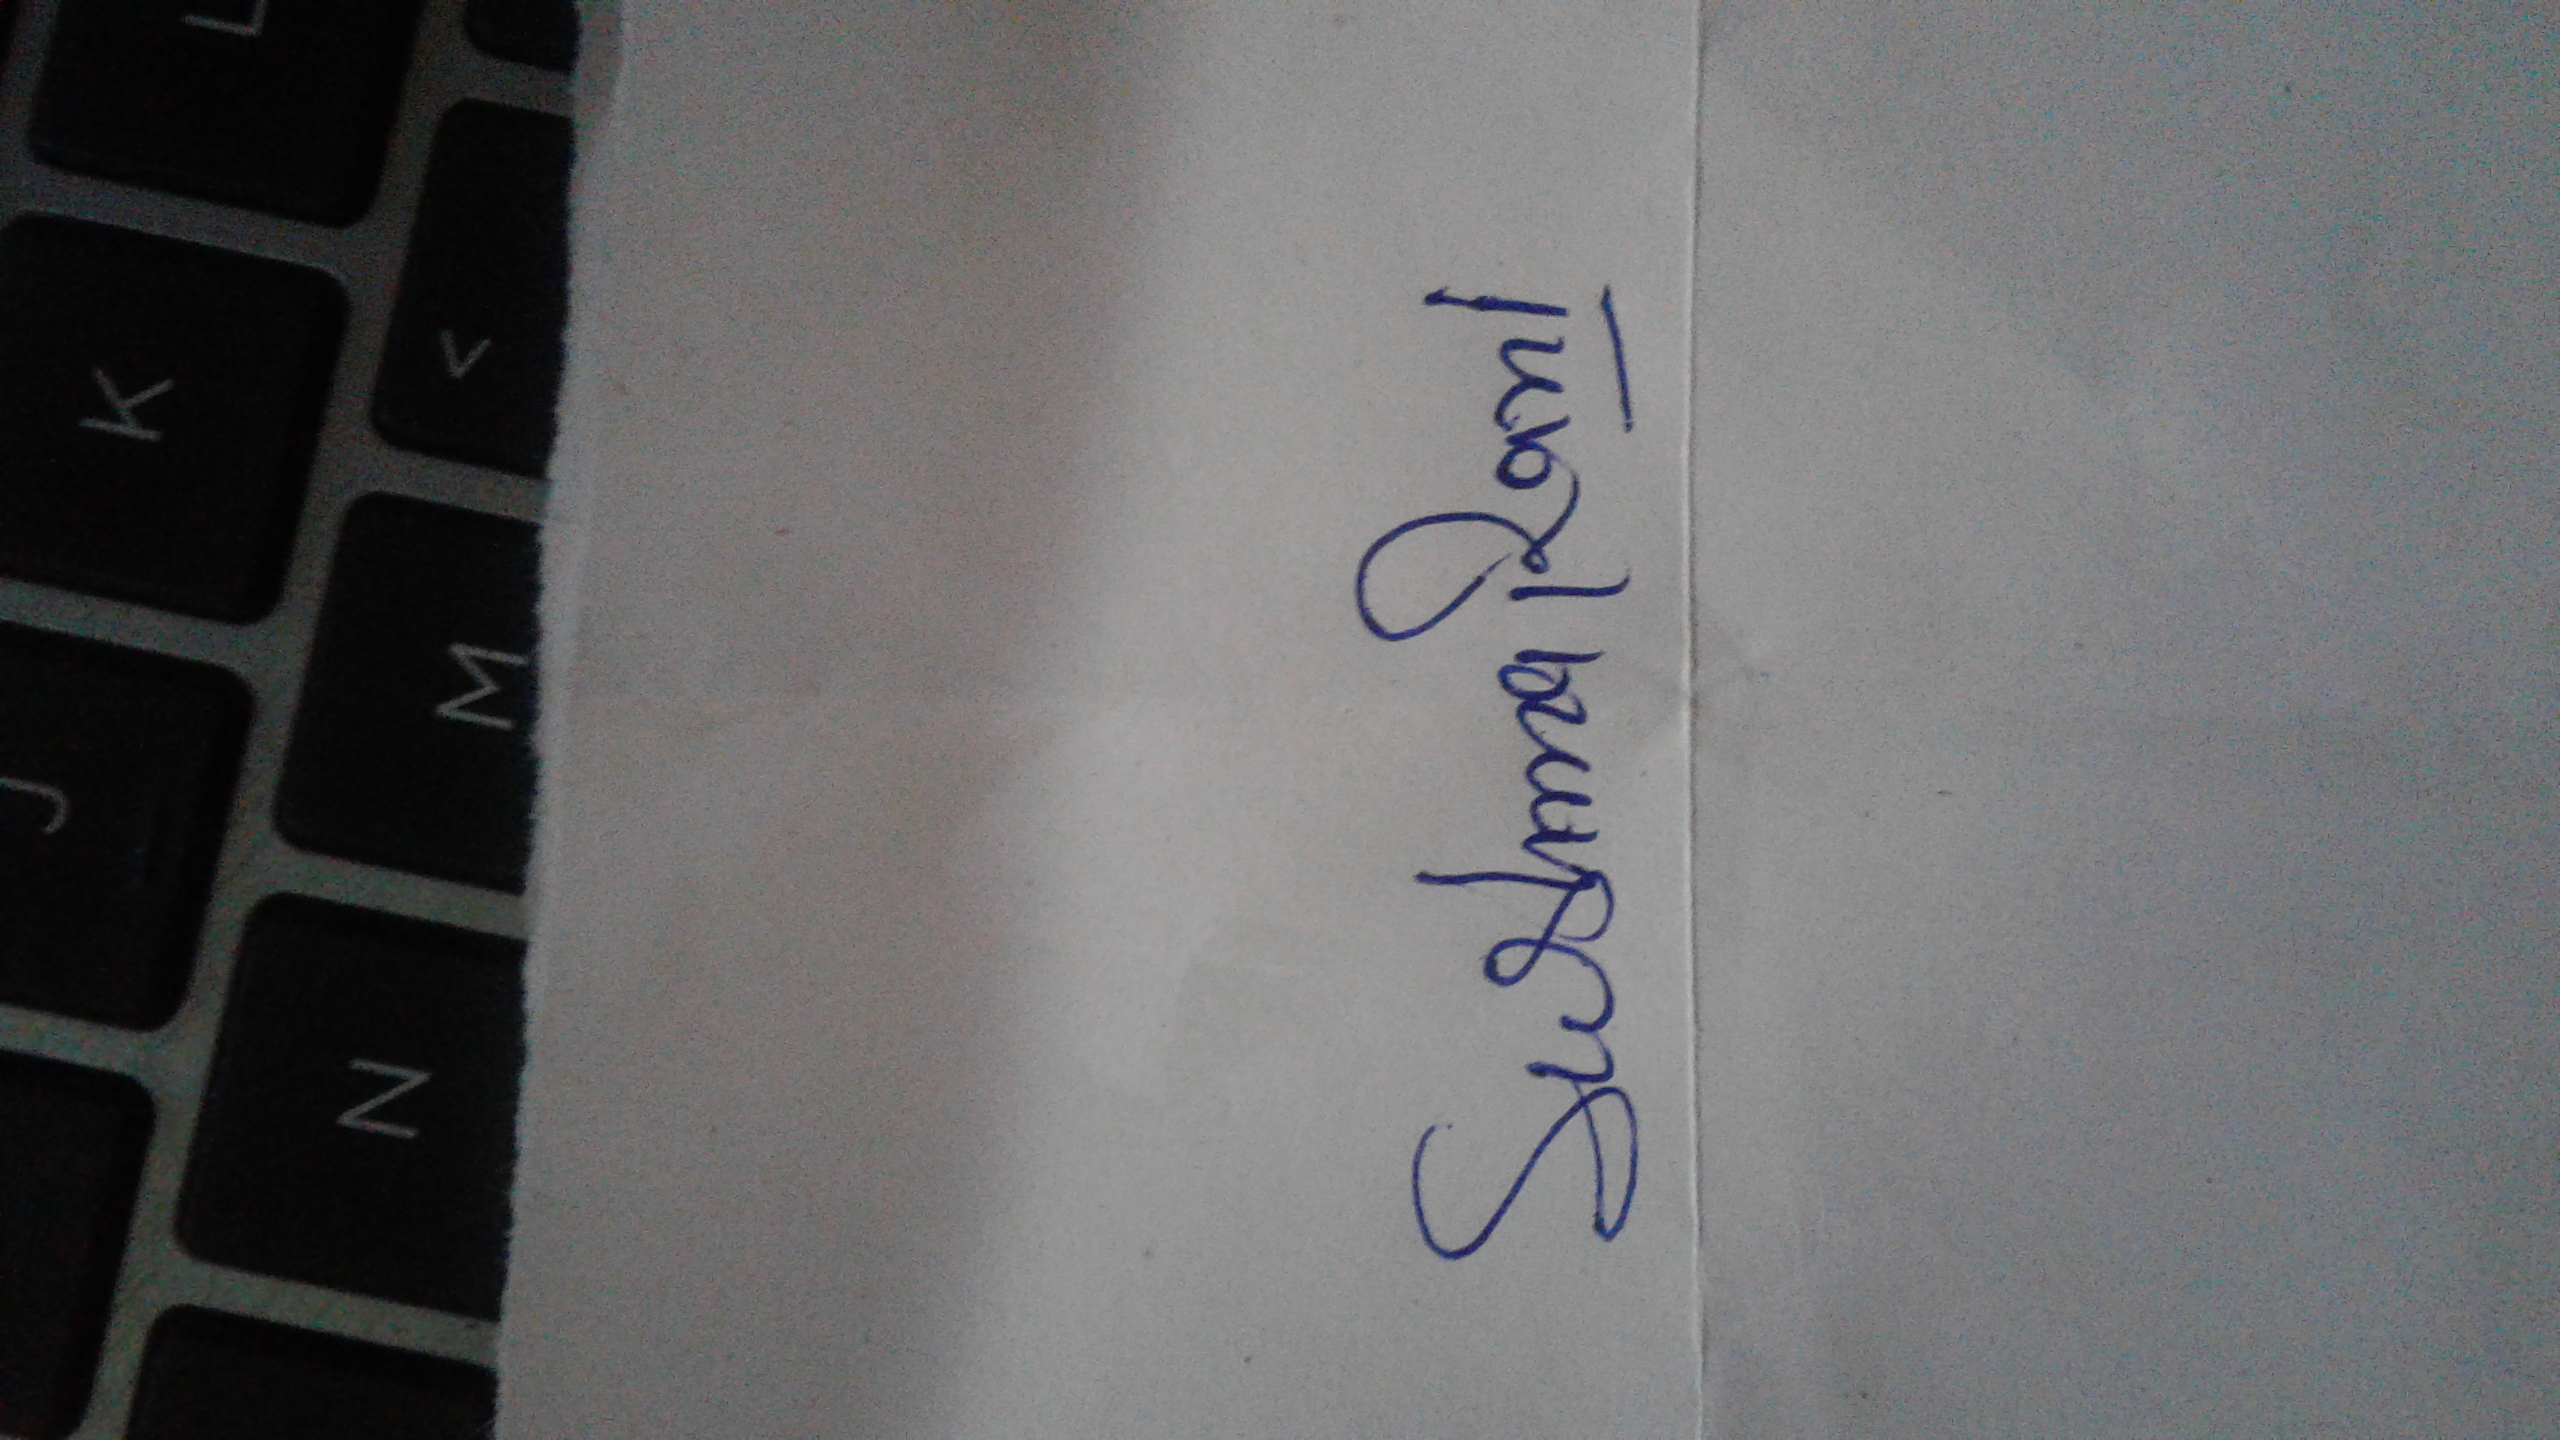 J K L
N M <
Sushma Rani